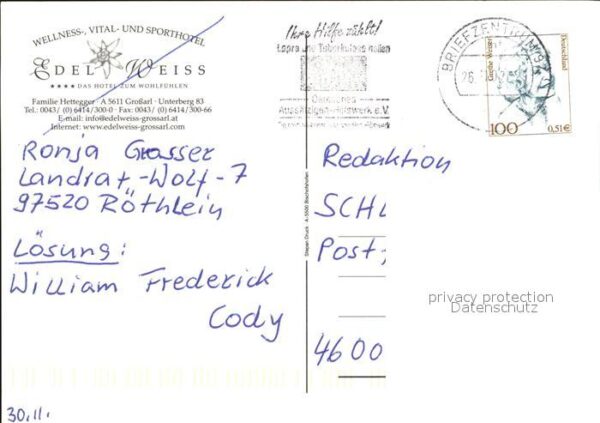 WELLNESS-, VITAL- UND SPORTHOTEL
EDELWEISS
★★★★ DAS HOTEL ZUM WOHLFÜHLEN
Familie Hettegger · A 5611 Großarl · Unterberg 83
Tel.: 0043/ (0) 6414/300-0 · Fax: 0043/ (0) 6414/300-66
E-mail: info@edelweiss.at
Internet: www.edelweiss-grossarl.at
Ronja Grasser
Landrat-Wolf-7
97520 Röthlein
Lösung:
William Frederick
Cody
30.11.
Ihre Hilfe zählt!
Lepra und Tuberkulose heilen
Deutsches
Aussätzigen-Hilfswerk e.V.
BRIEFZENTRUM
26
Deutschland
100
0,51€
Redaktion
SCHL
Post
4600
A-5500 Bischofshofen
privacy protection
Datenschutz